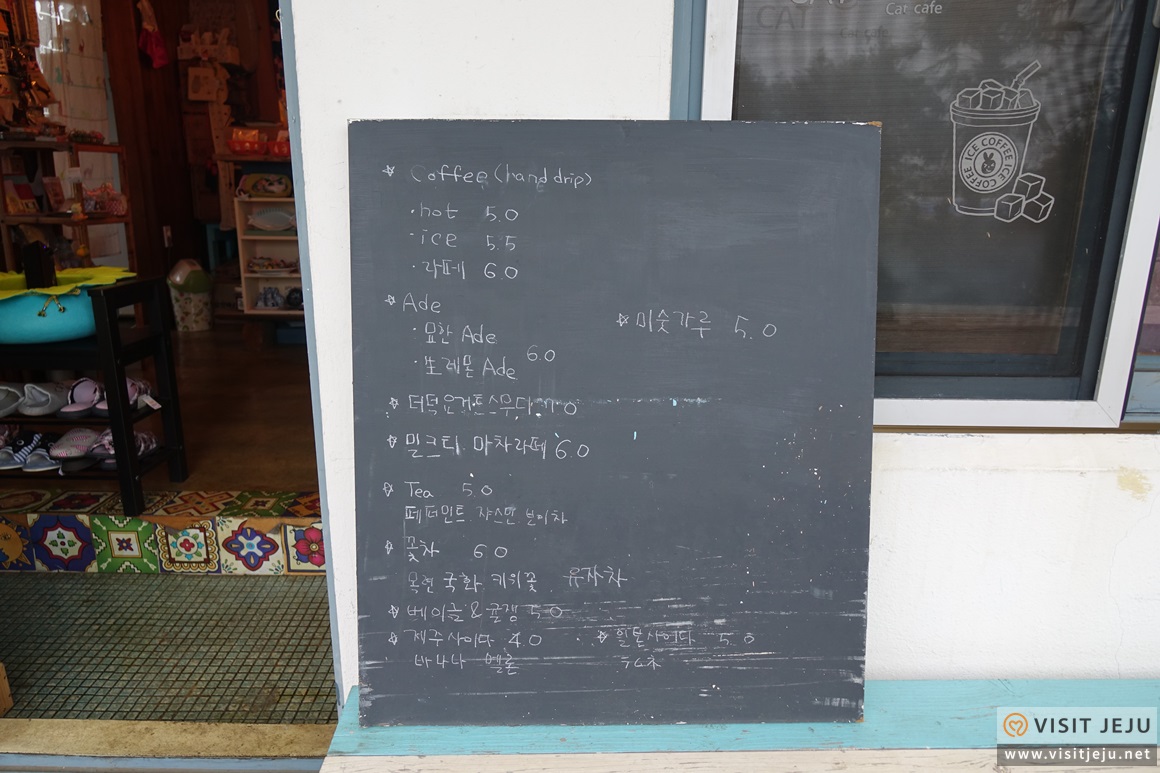 Cat cafe
ICE COFFEE ICE COFFEE
☆ Coffee (hand drip)
· hot 5.0
· ice 5.5
· 라떼 6.0
☆ Ade
· 묘한 Ade
· 生레몬 Ade 6.0
☆ 미숫가루 5.0
☆ 더덕요거트스무디 7.0
☆ 밀크티. 마차라떼 6.0
☆ Tea 5.0
페퍼민트 쟈스민 보이차
☆ 꽃차 6.0
목련 국화 키위꽃 유자차
☆ 베이글 & 귤잼 5.0
☆ 제주사이다 4.0
바나나 멜론
☆ 일본사이다 5.0
VISIT JEJU
www.visitjeju.net